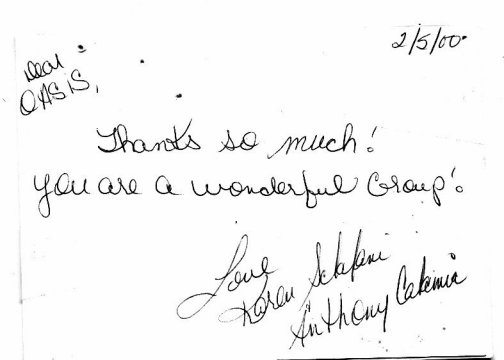 2/5/00
Dear
OASIS,
Thanks so much!
You are a wonderful Group!
Love
Karen Sclafani
Anthony